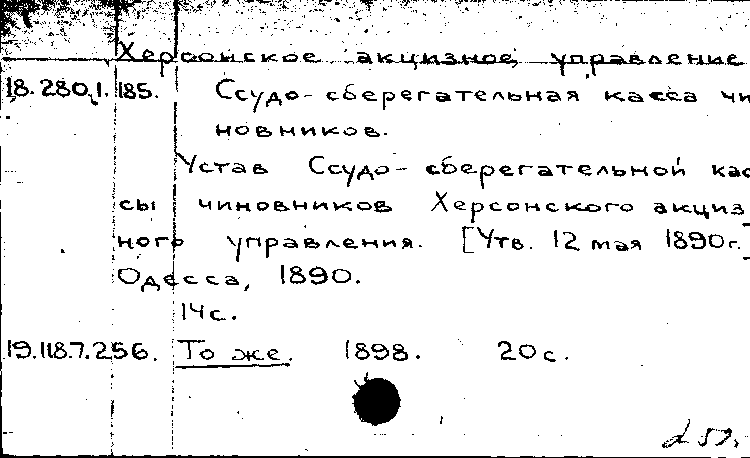 Херсонское акцизное управление
18.280.1.185. Ссудо-сберегательная касса чи-
новников.
Устав Ссудо-сберегательной кас
сы чиновников Херсонского акциз
ного управления. [Утв. 12 мая 1890г.]
Одесса, 1890.
14с.
19.118.7.256. То же. 1898. 20с.